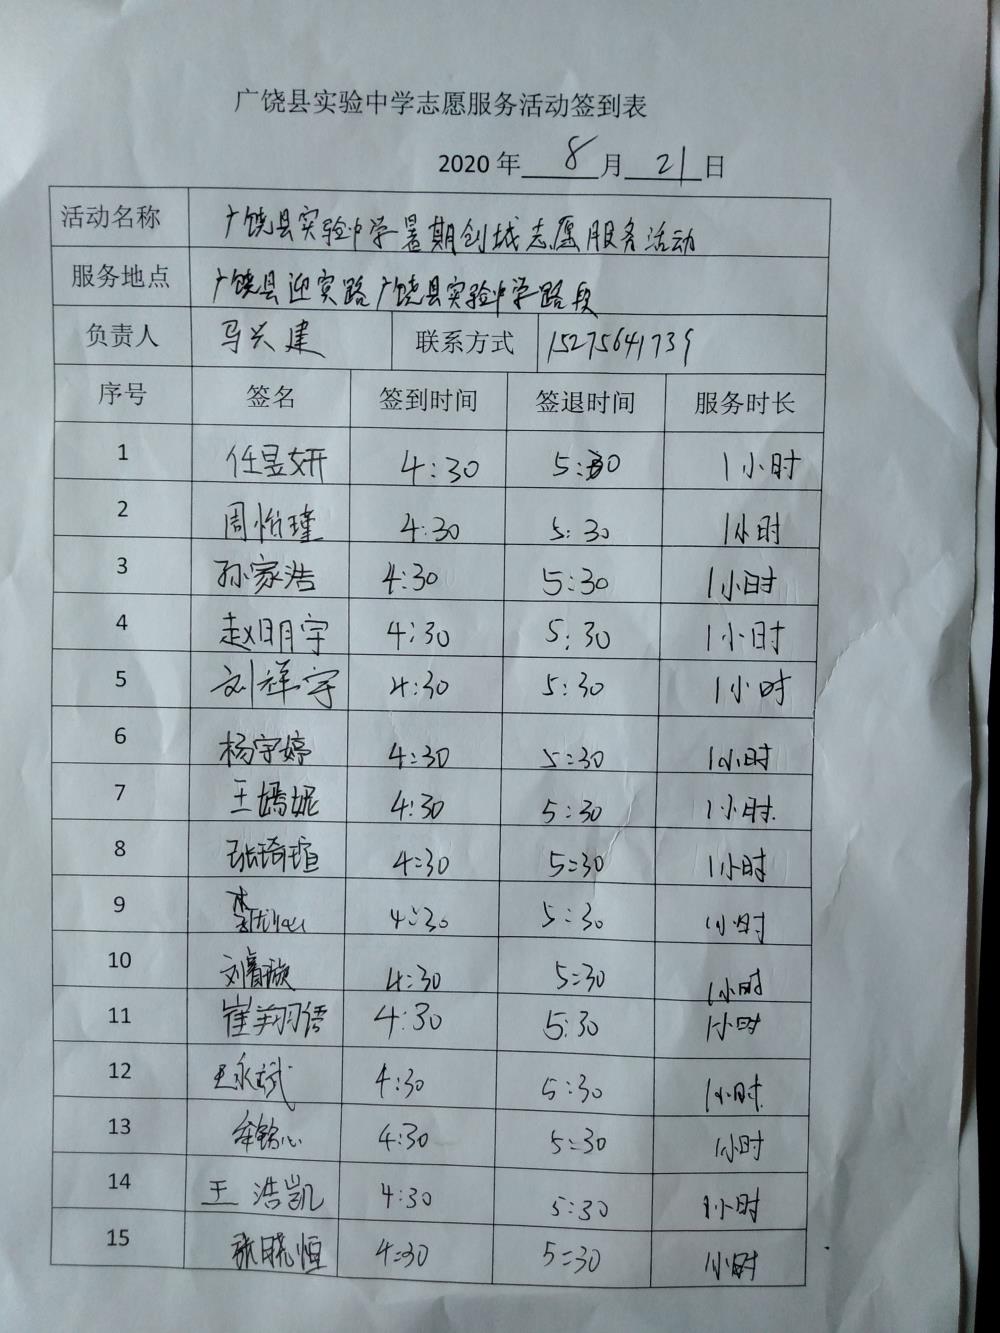 广饶县实验中学志愿服务活动签到表
2020 年 8 月 21 日
活动名称 广饶县实验中学暑期创城志愿服务活动
服务地点 广饶县迎宾路广饶县实验中学路段
负责人 马兴建 联系方式 15275641739
序号 签名 签到时间 签退时间 服务时长
1 任昱妍 4:30 5:30 1小时
2 周怡瑾 4:30 5:30 1小时
3 孙家浩 4:30 5:30 1小时
4 赵明宇 4:30 5:30 1小时
5 刘祥宇 4:30 5:30 1小时
6 杨宇婷 4:30 5:30 1小时
7 王嫣妮 4:30 5:30 1小时
8 张琦瑄 4:30 5:30 1小时
9 4:30 5:30 1小时
10 4:30 5:30 1小时
11 崔翔儒 4:30 5:30 1小时
12 王永斌 4:30 5:30 1小时
13 牟铭心 4:30 5:30 1小时
14 王浩凯 4:30 5:30 1小时
15 张晓恒 4:30 5:30 1小时